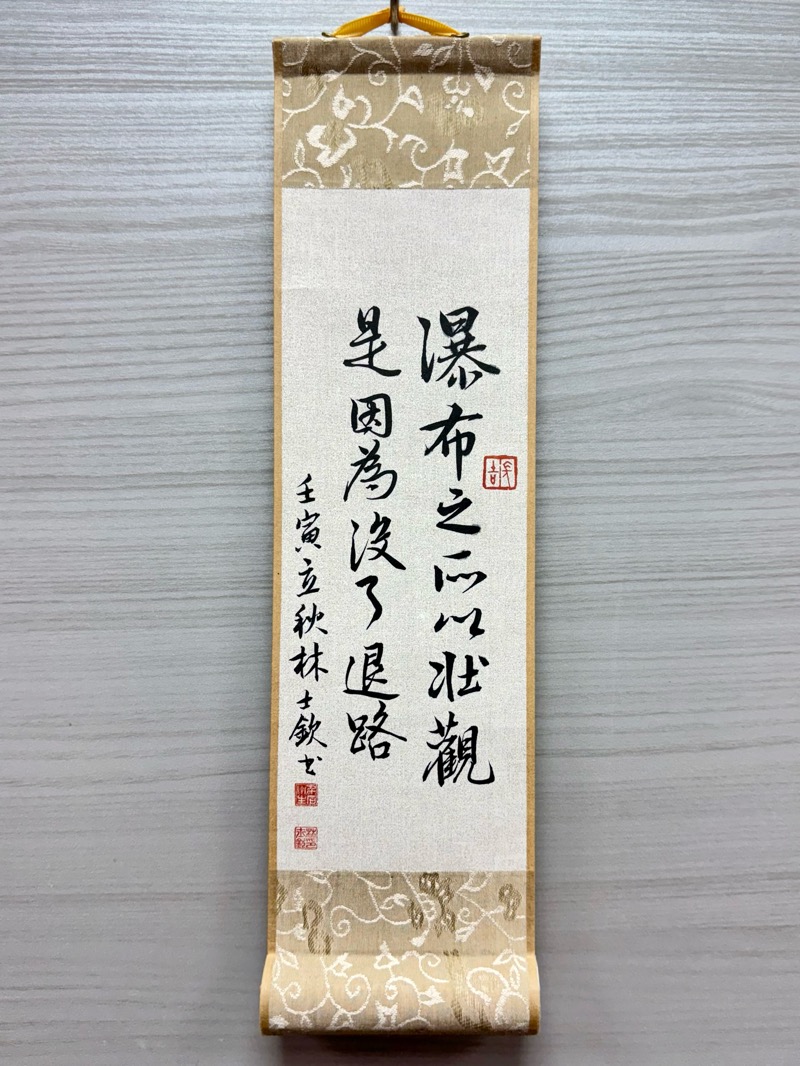 瀑布之所以壯觀
是因為沒了退路
壬寅立秋林士欽书